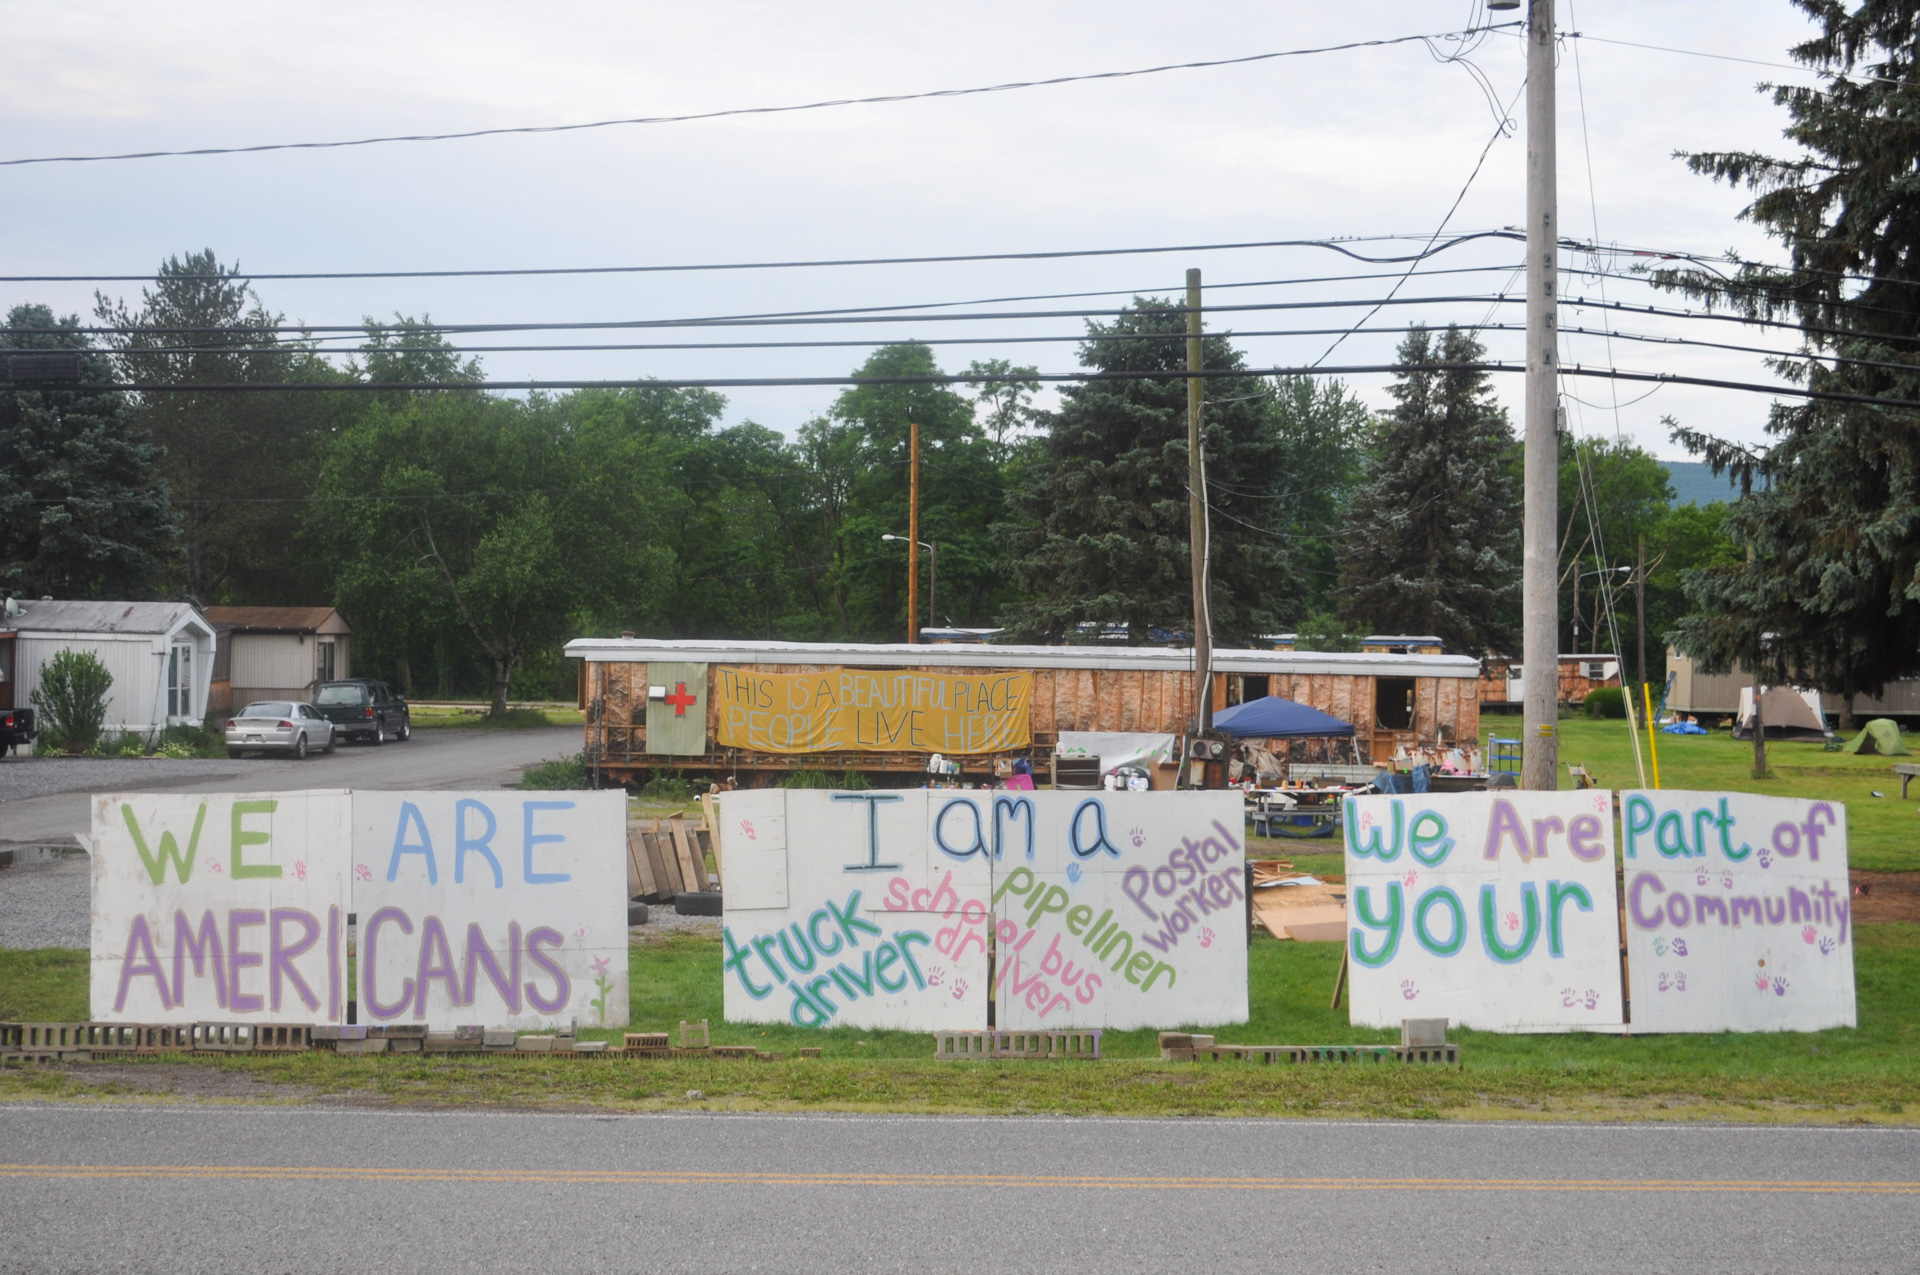 THIS IS A BEAUTIFUL PLACE
PEOPLE LIVE HERE
WE ARE
AMERICANS
I am a
truck
driver
school bus
driver
PIPelIner
Postal
Worker
We Are
your
Part of
Community